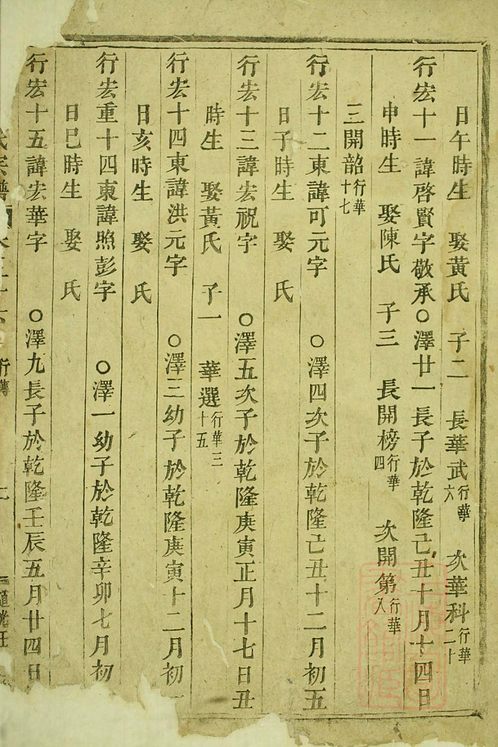 日午時生　娶黃氏　子二　長華武行華六　次華科行華二十
行宏十一諱啓賢字敬承○澤廿一長子於乾隆己丑十月十四日
申時生　娶陳氏　子三　長開榜行華四　次開第行華八
三開韶行華十七
行宏十二東諱可元字　○澤四次子於乾隆己丑十二月初五
日子時生　娶　氏
行宏十三諱宏祝字　○澤五次子於乾隆庚寅正月十七日丑
時生　娶黃氏　子一　華選行華三十五
行宏十四東諱洪元字　○澤三幼子於乾隆庚寅十二月初
日亥時生　娶　氏
行宏重十四東諱照彭字　○澤一幼子於乾隆辛卯七月初
日巳時生　娶　氏
行宏十五諱宏華字　○澤九長子於乾隆壬辰五月廿四日
氏宗譜